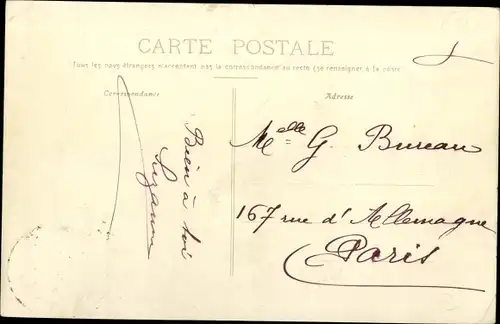 CARTE POSTALE
Tous les pays étrangers n'acceptent pas la correspondance au recto (se renseigner à la poste)
Correspondance
Adresse
Bien à toi
Suzanne
Melle G. Bureau
167 rue d'Allemagne
Paris